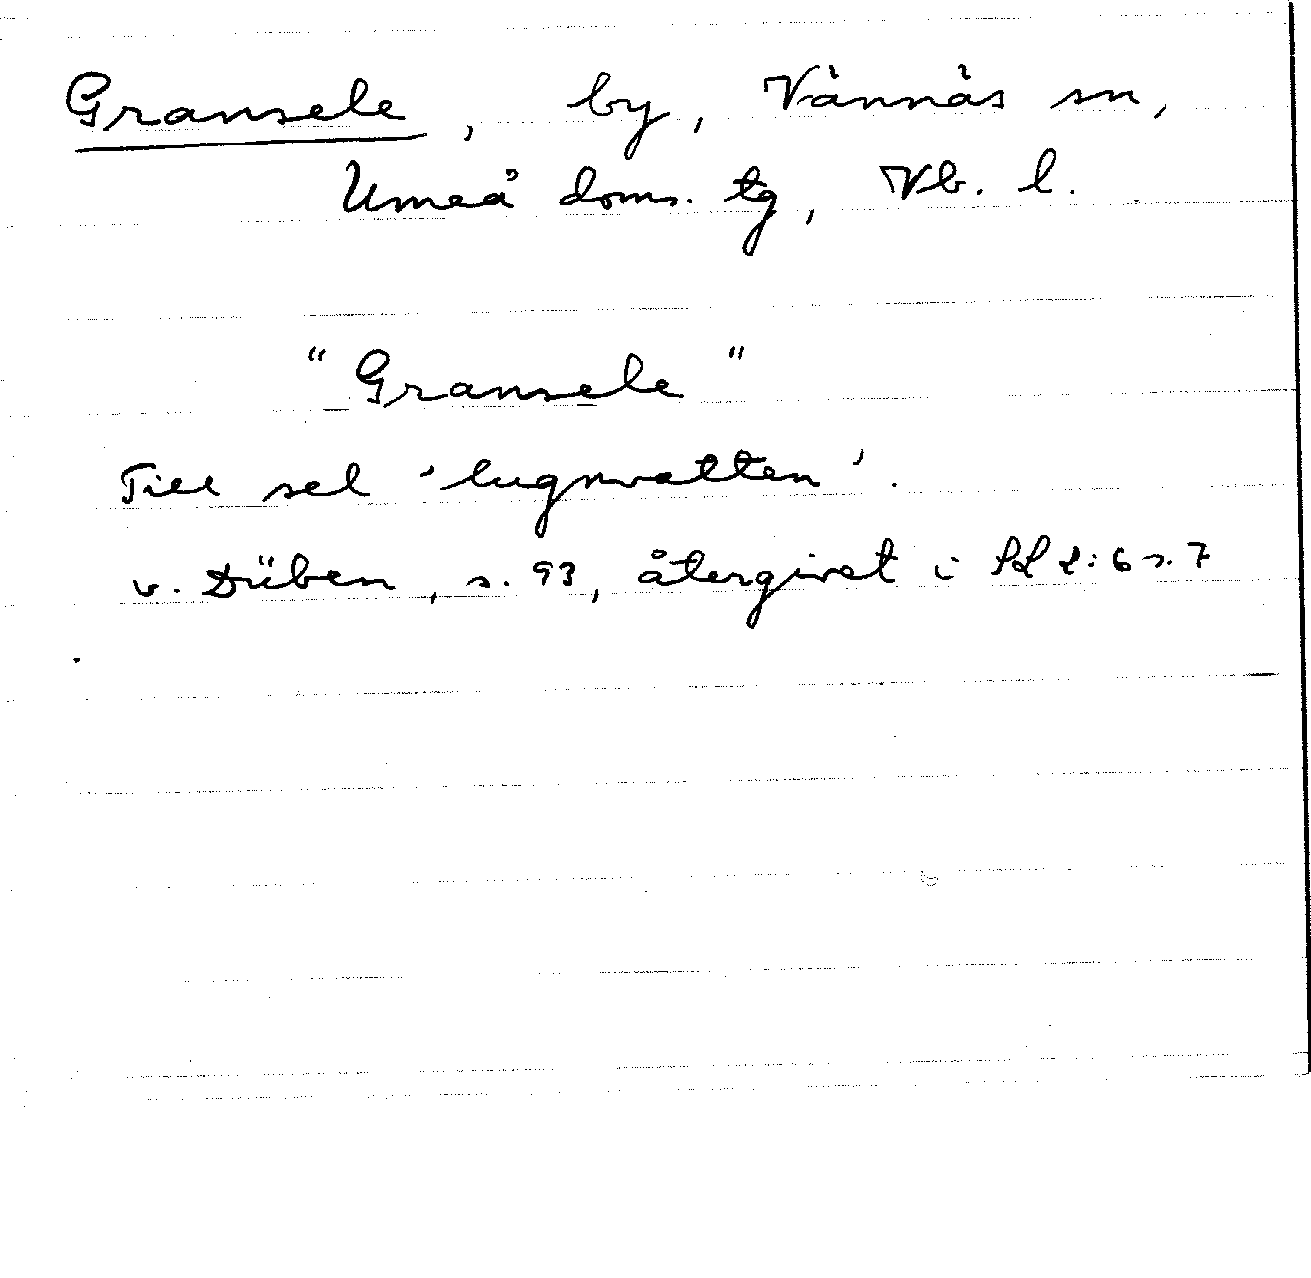 Gransele, by, Vännäs sn,
Umeå doms. tg, Vb. l.
"Gransele"
Till sel 'lugnvatten'.
v. Düben, s. 93, återgivet i 2:6 s. 7